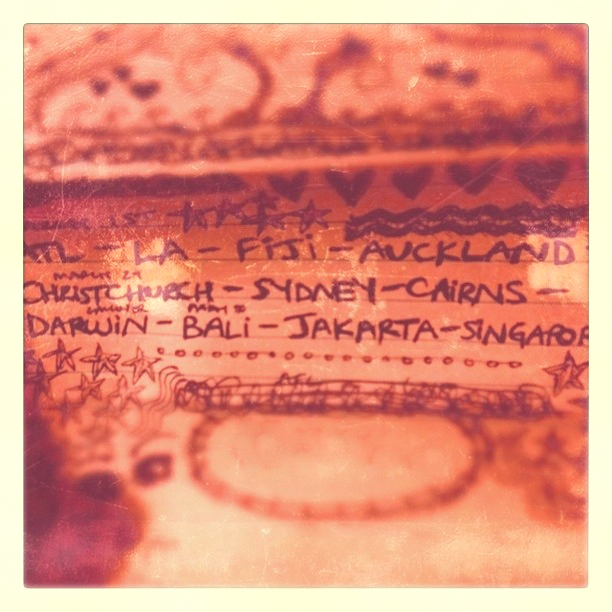 ATL - LA - FiJi - AUCKLAND
CHRISTCHURCH - SYDNEY - CAiRNS -
DARWiN - BALi - JAKARTA - SiNGAPOR